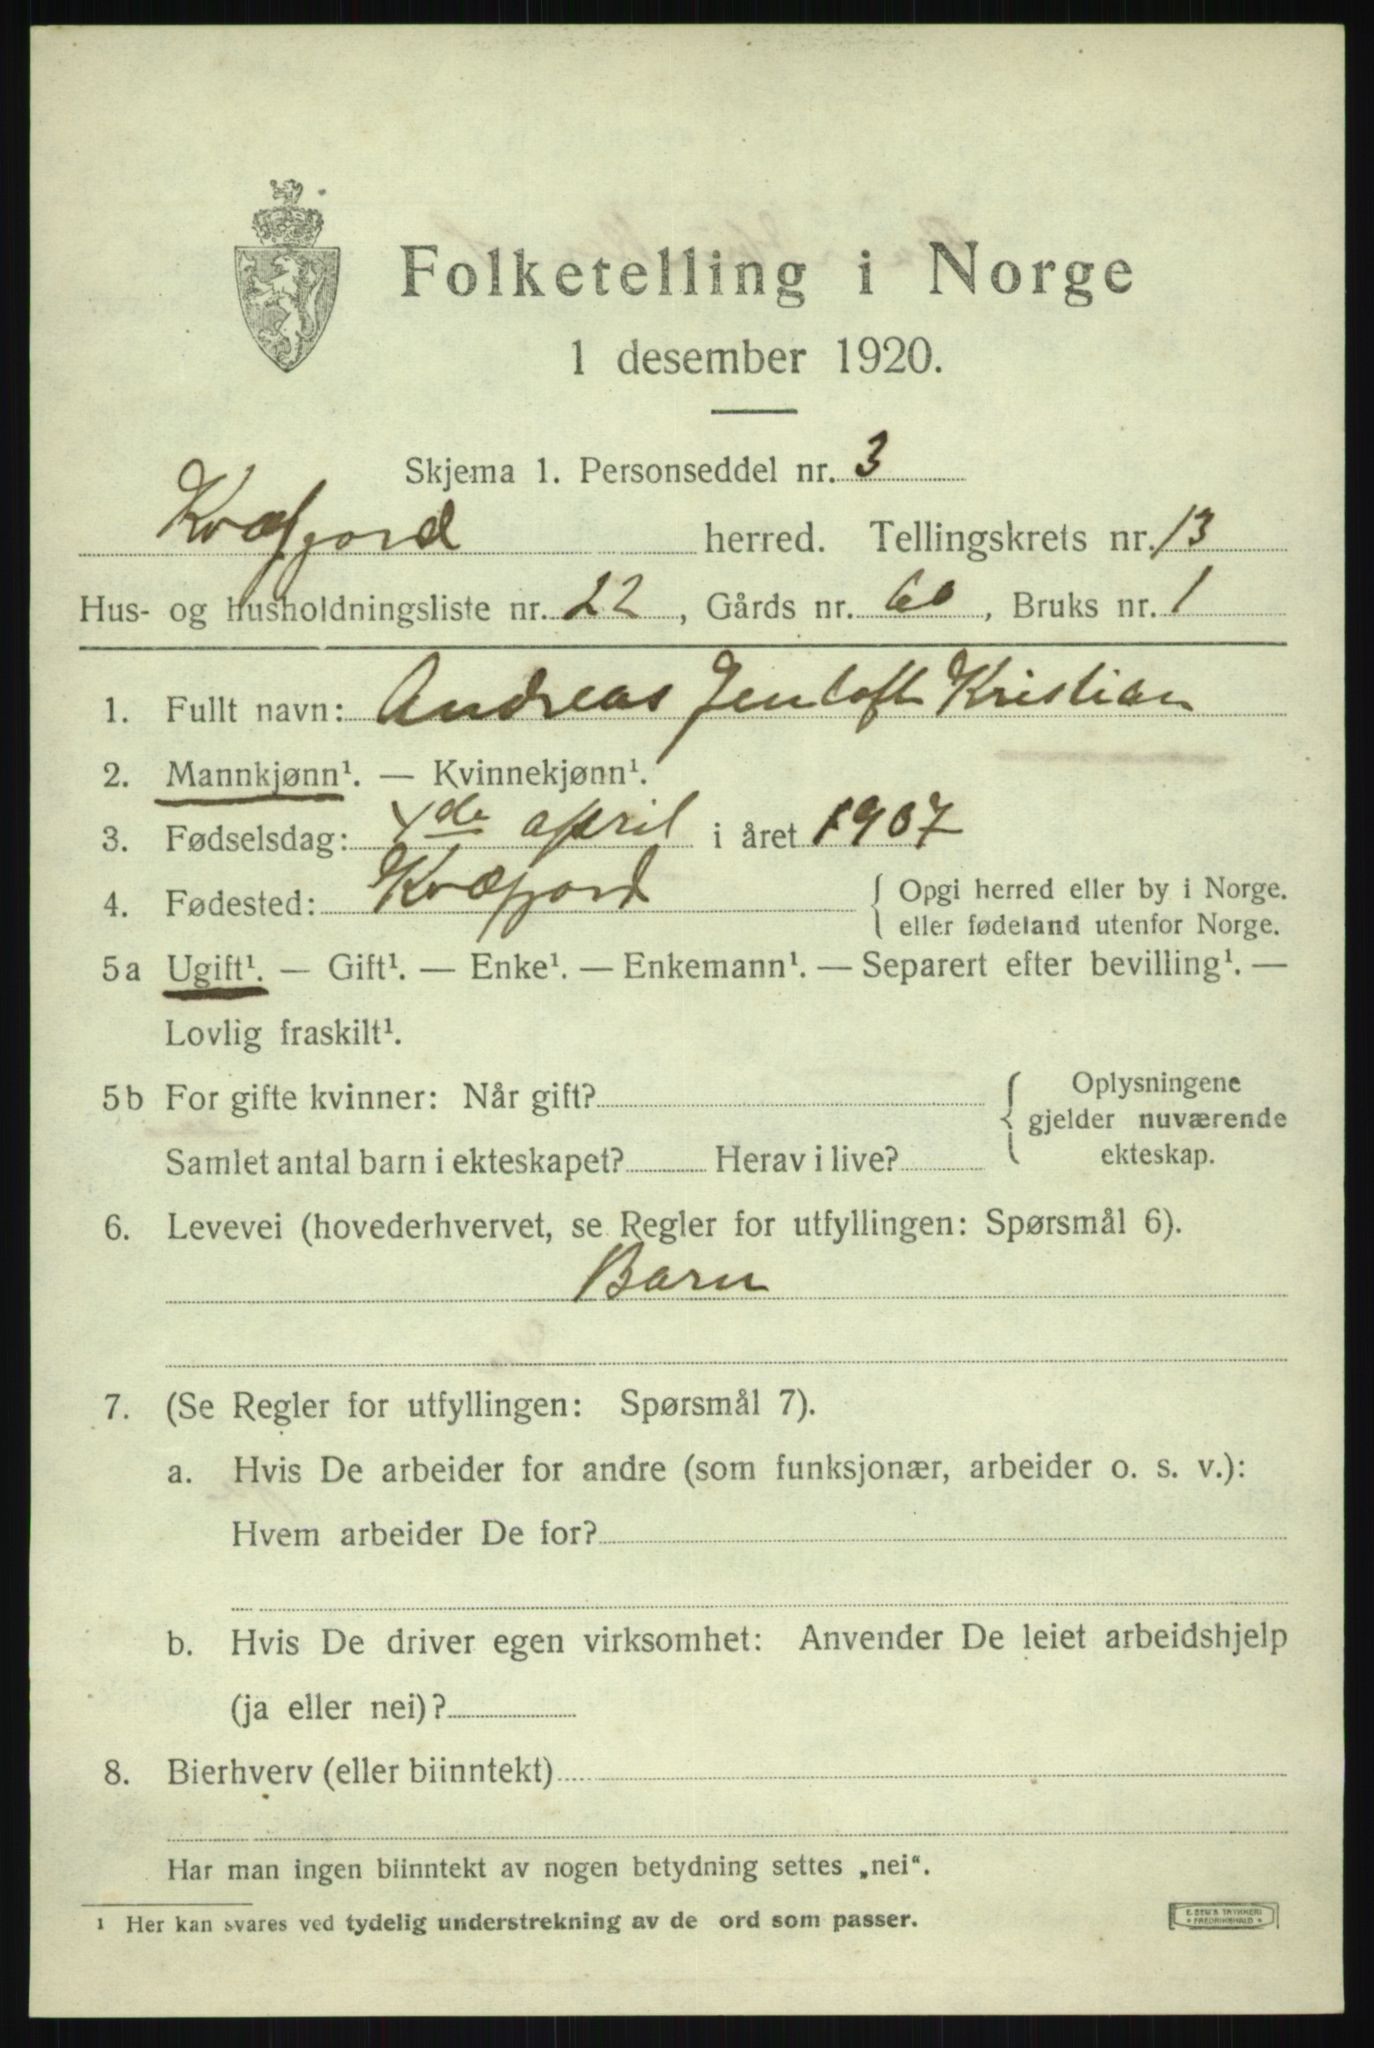 Folketelling i Norge
1 desember 1920.
Skjema 1. Personseddel nr. 3
Kvæfjord herred. Tellingskrets nr. 13
Hus- og husholdningsliste nr. 22, Gårds nr. 60, Bruks nr. 1
1. Fullt navn: Andreas Jentoft Kristian
2. Mannkjønn¹. — Kvinnekjønn¹.
3. Fødselsdag: 4de april i året 1907
4. Fødested: Kvæfjord { Opgi herred eller by i Norge.
eller fødeland utenfor Norge.
5a Ugift¹. — Gift¹. — Enke¹. — Enkemann¹. — Separert efter bevilling¹. —
Lovlig fraskilt¹.
5b For gifte kvinner: Når gift?
Samlet antal barn i ekteskapet? Herav i live?
Oplysningene
gjelder nuværende
ekteskap.
6. Levevei (hovederhvervet, se Regler for utfyllingen: Spørsmål 6).
Barn
7. (Se Regler for utfyllingen: Spørsmål 7).
a. Hvis De arbeider for andre (som funksjonær, arbeider o. s. v.):
Hvem arbeider De for?
b. Hvis De driver egen virksomhet: Anvender De leiet arbeidshjelp
(ja eller nei)?
8. Bierhverv (eller biinntekt)
Har man ingen biinntekt av nogen betydning settes „nei“.
¹ Her kan svares ved tydelig understrekning av de ord som passer.
E. SEM'S TRYKKERI
* FREDRIKSHALD *